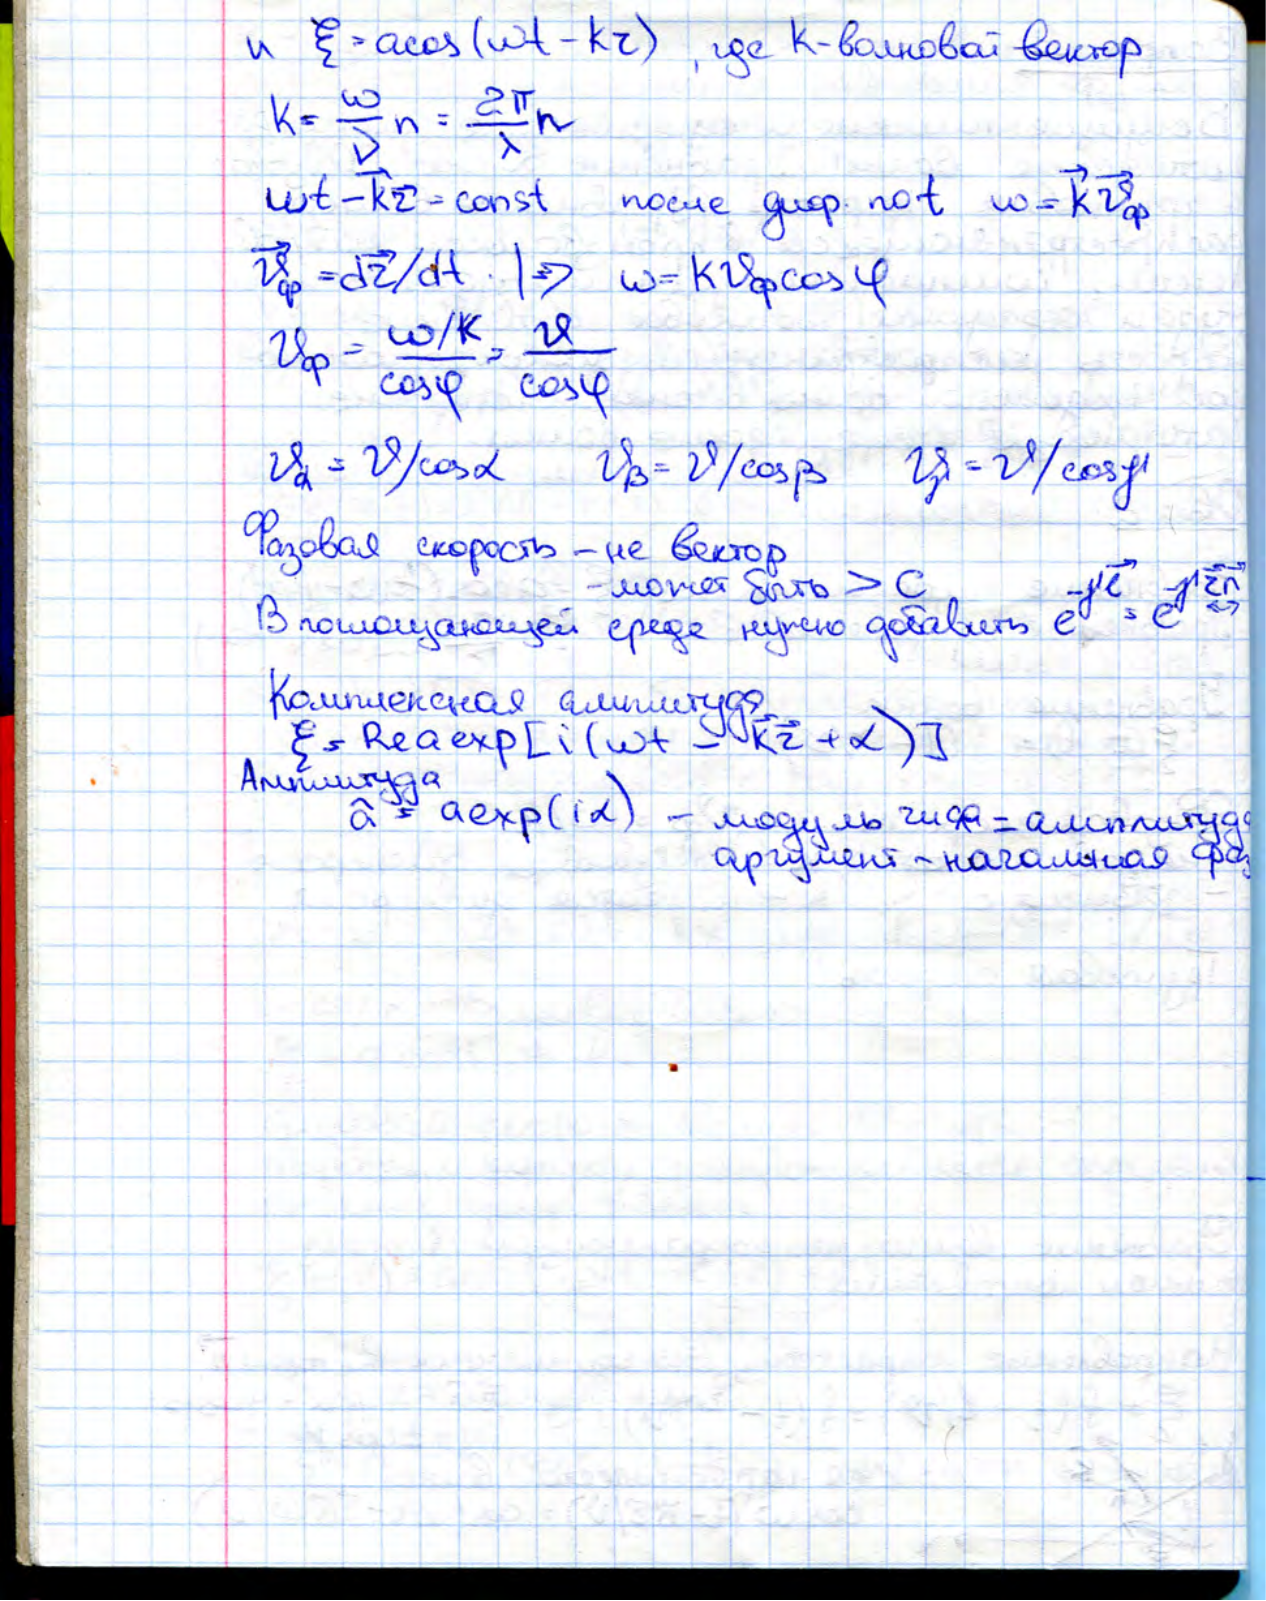 и ξ = acos(ωt − kr), где k - волновой вектор
k = ω/V n = 2π/λ n
ωt − k⃗r⃗ = const после диф. по t ω = k⃗v⃗ф
v⃗ф = dr⃗/dt |⇒ ω = kvфcosφ
vф = (ω/k)/cosφ = v/cosφ
vα = v/cosα vβ = v/cosβ vγ = v/cosγ
Фазовая скорость – не вектор
- может быть > C
В поглощающей среде нужно добавить e^(−γr⃗) = e^(−γr⃗n⃗) ↔
Комплексная амплитуда
ξ = Re a exp[i(ωt − k⃗r⃗ + α)]
Амплитуда
â = aexp(iα) – модуль числа = амплитуда
аргумент – начальная фаз